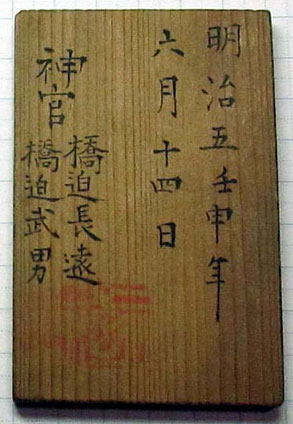 明治五壬申年
六月十四日
神官
橋迫長遠
橋迫武男